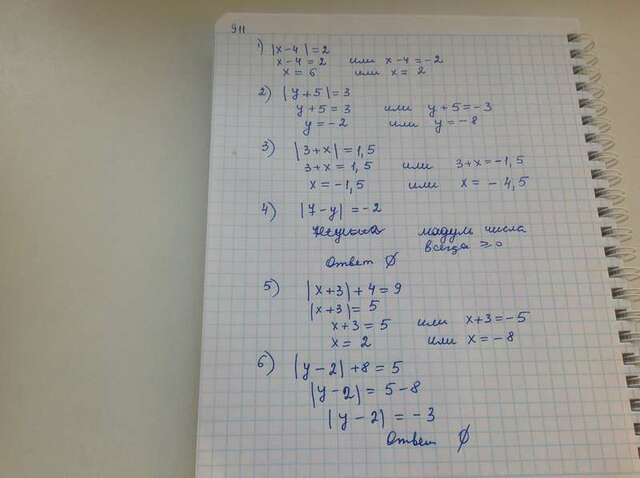 911
1) |x-4|=2
x-4=2 или x-4=-2
x=6 или x=2
2) |y+5|=3
y+5=3 или y+5=-3
y=-2 или y=-8
3) |3+x|=1,5
3+x=1,5 или 3+x=-1,5
x=-1,5 или x=-4,5
4) |7-y|=-2
модул числа
всегда ≥0
Ответ ∅
5) |x+3|+4=9
|x+3|=5
x+3=5 или x+3=-5
x=2 или x=-8
6) |y-2|+8=5
|y-2|=5-8
|y-2|=-3
Ответ ∅